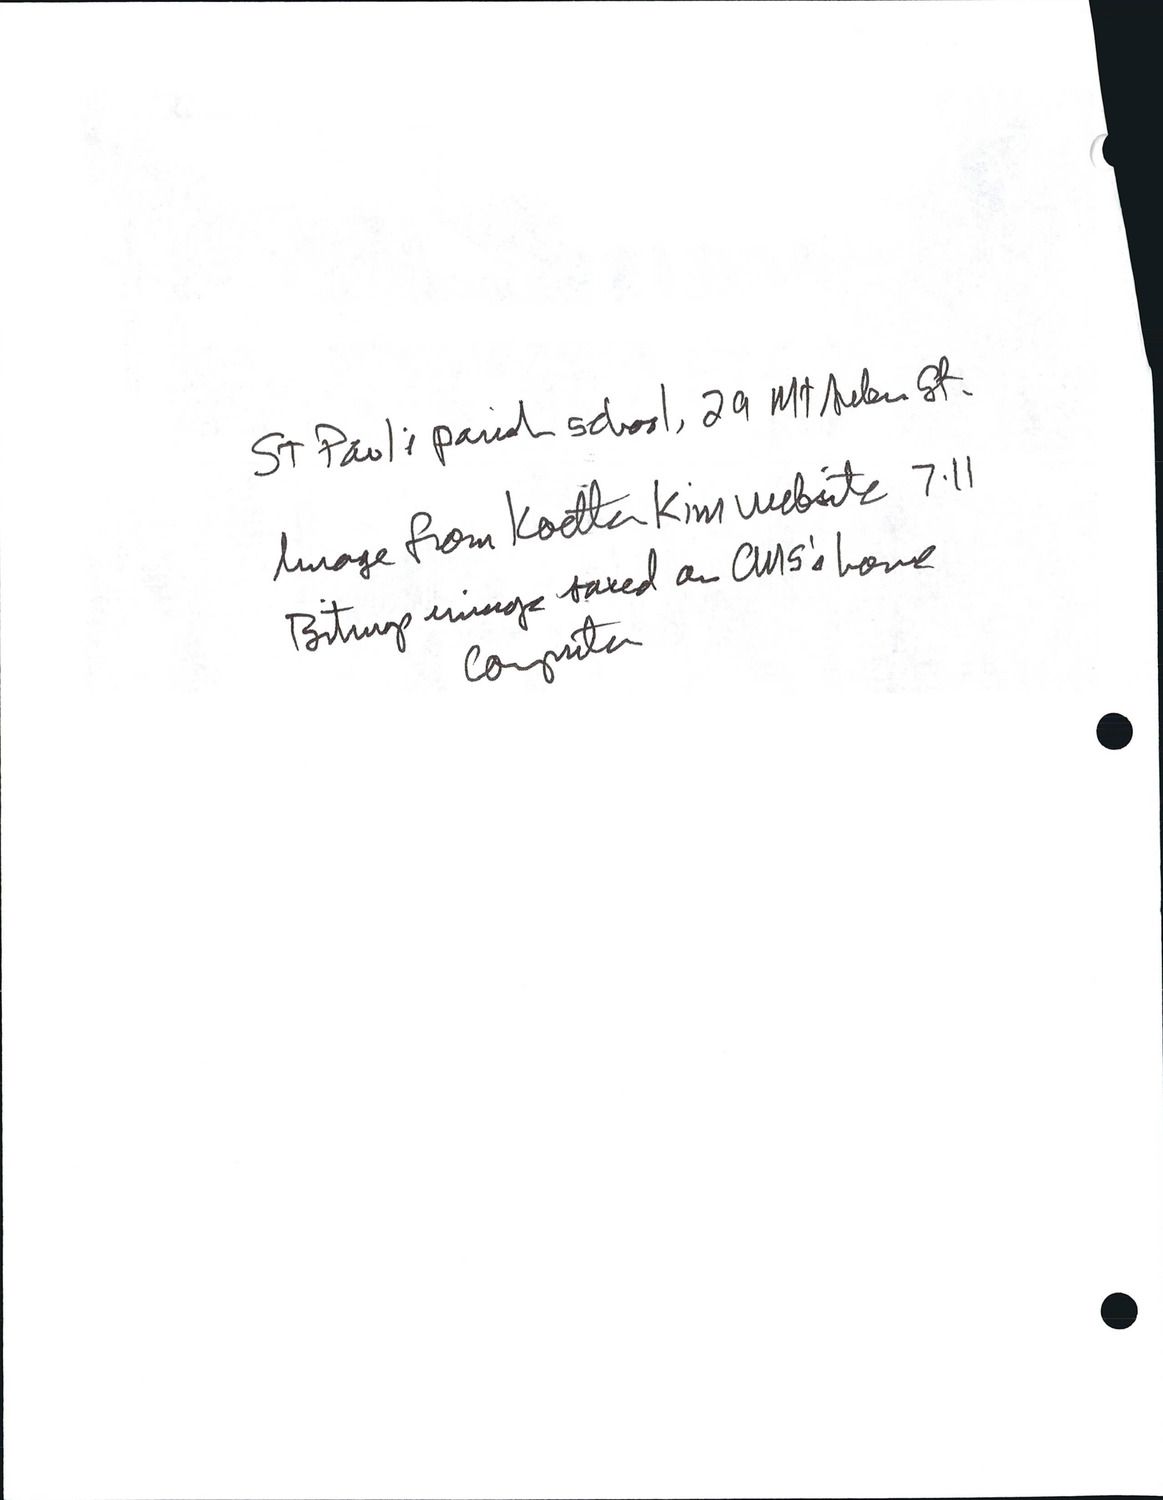 St Paul's parish school, 29 Mt Auburn St.
Image from Koetter Kim website 7.11
Bitmap image saved on CMS's home
Computer